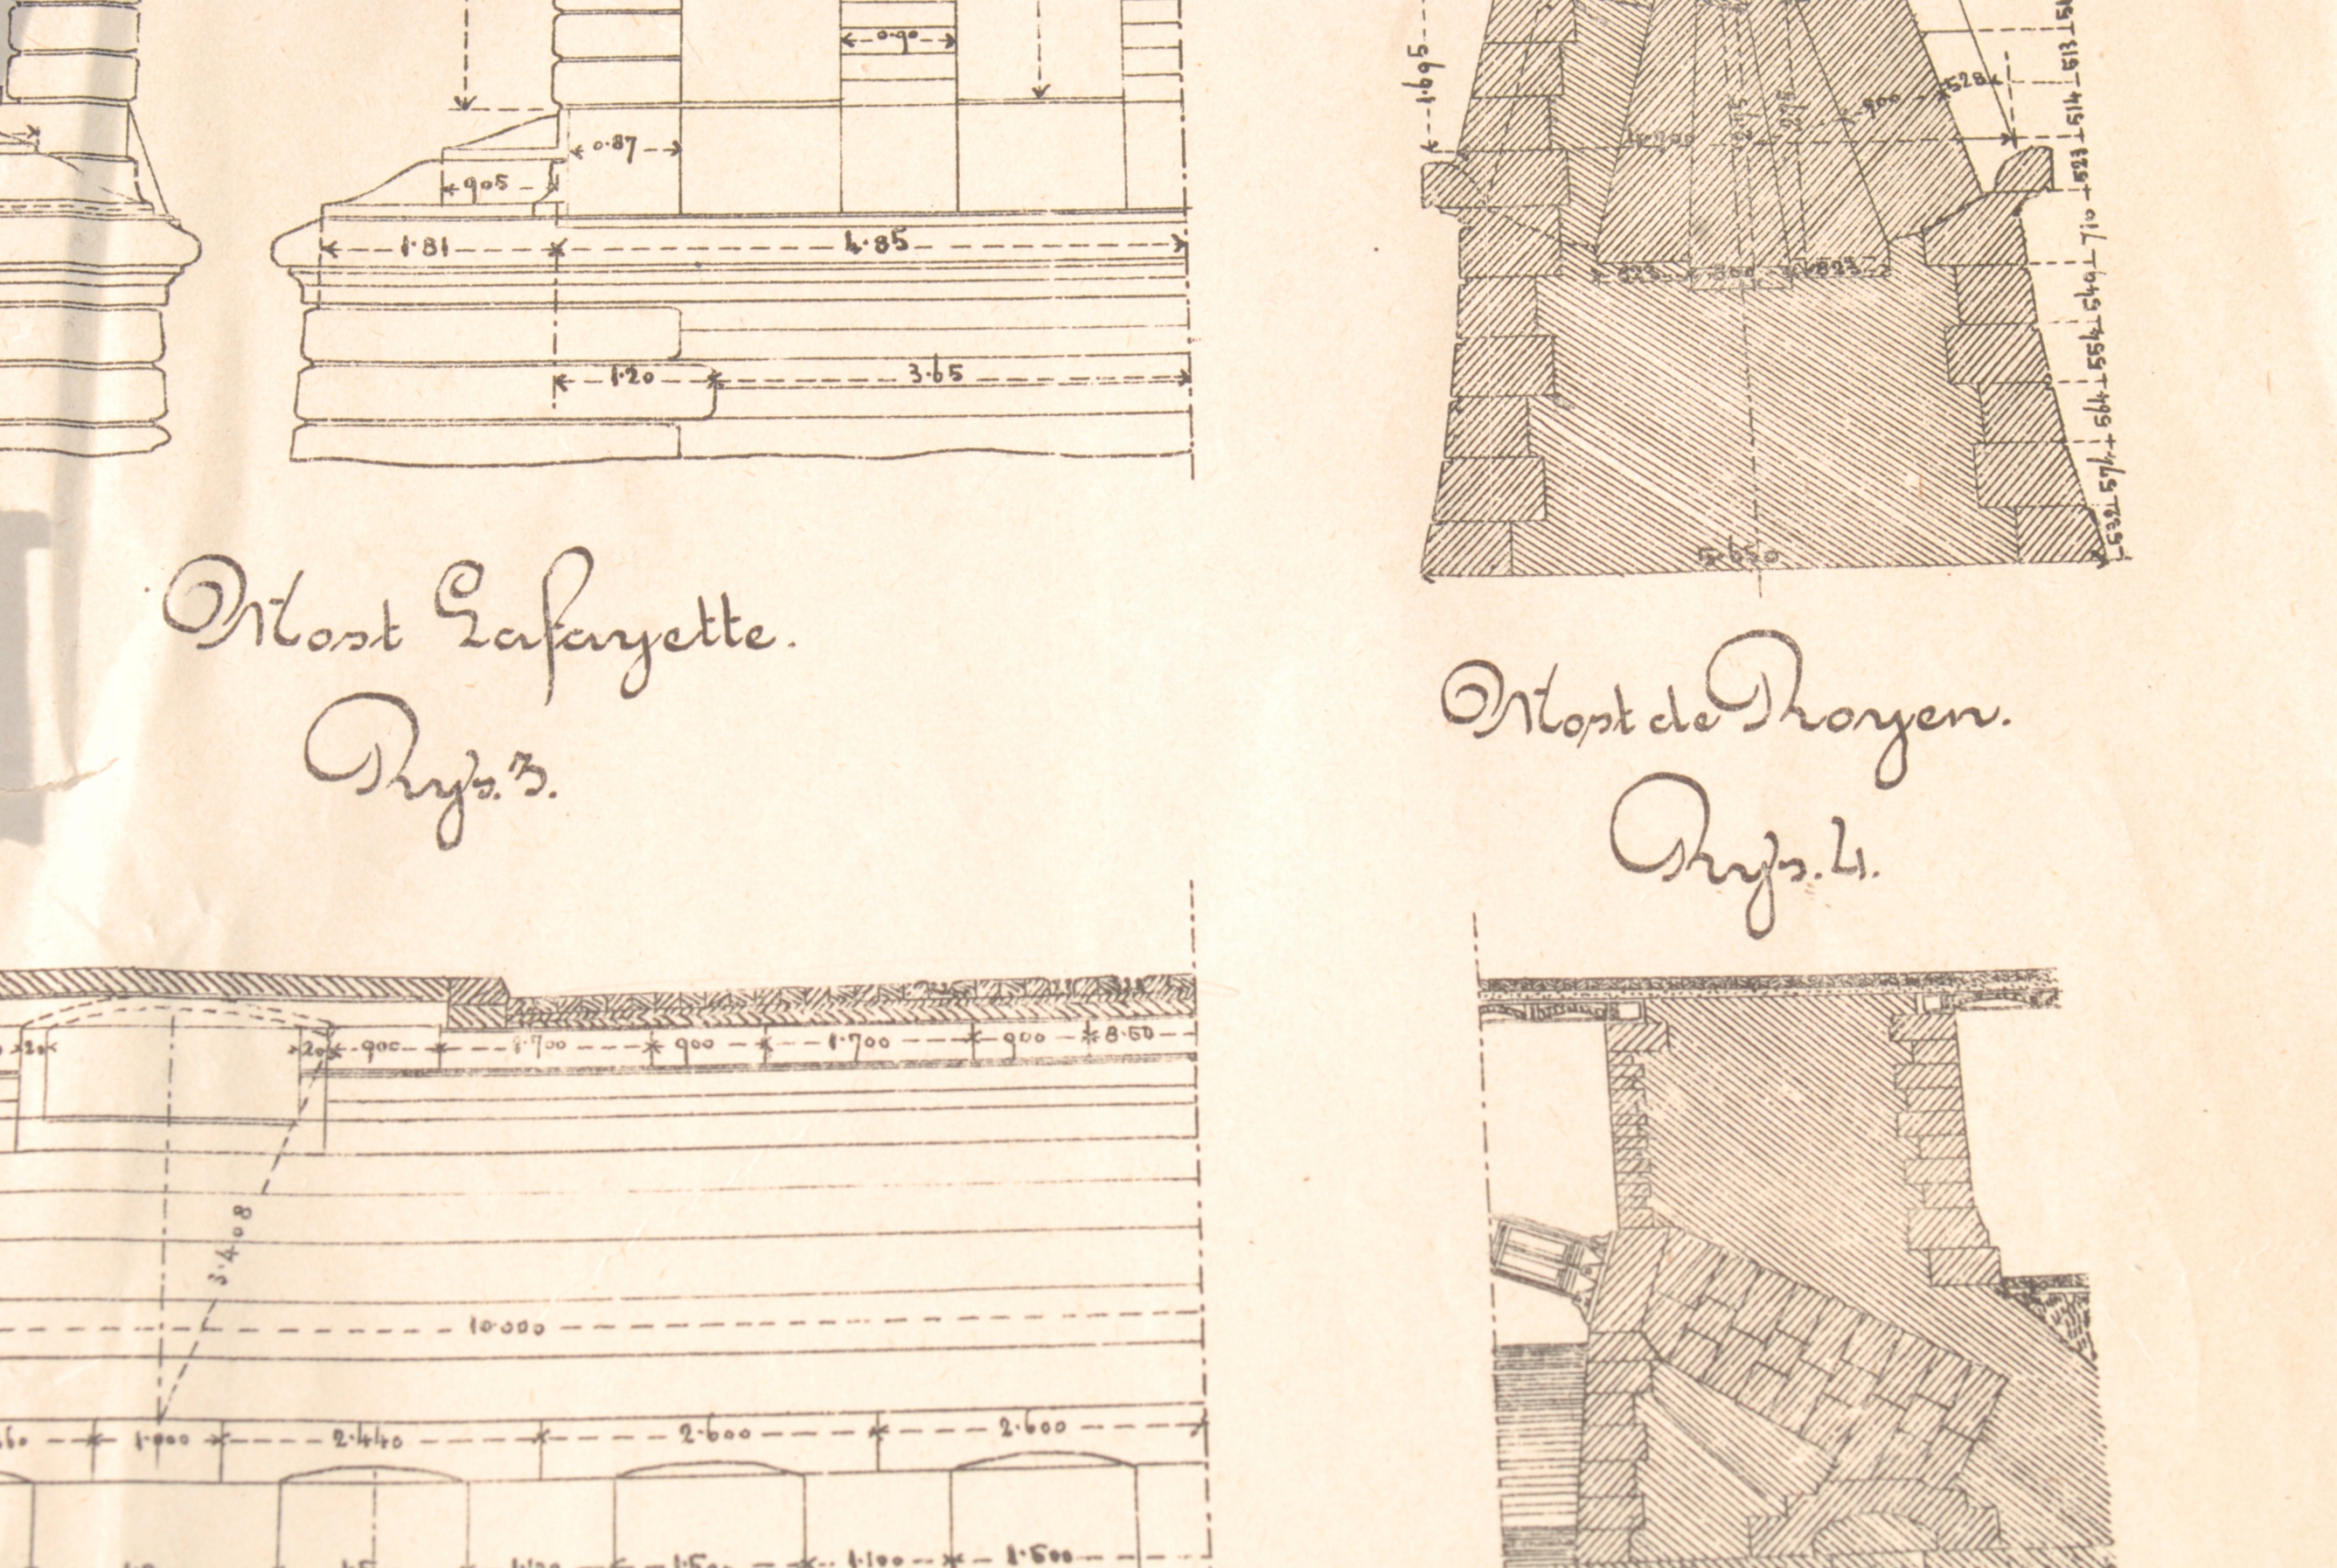 0.90
0.87
905
1.81
4.85
1.20
3.65
1.695
528
900
275
275
513
514
523
710
549
554
564
574
532
823
823
5.650
Most Lafayette.
Rys. 3.
Most de Royen.
Rys. 4.
20
20
900
1.700
900
1.700
900
8.50
3.408
10.000
1.000
2.440
2.600
2.600
1.100
1.500